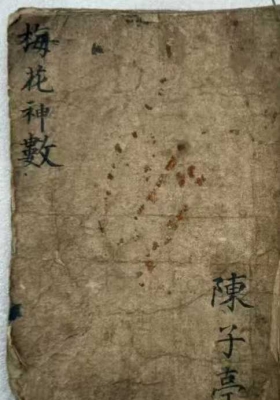 梅花神數
陳子亭